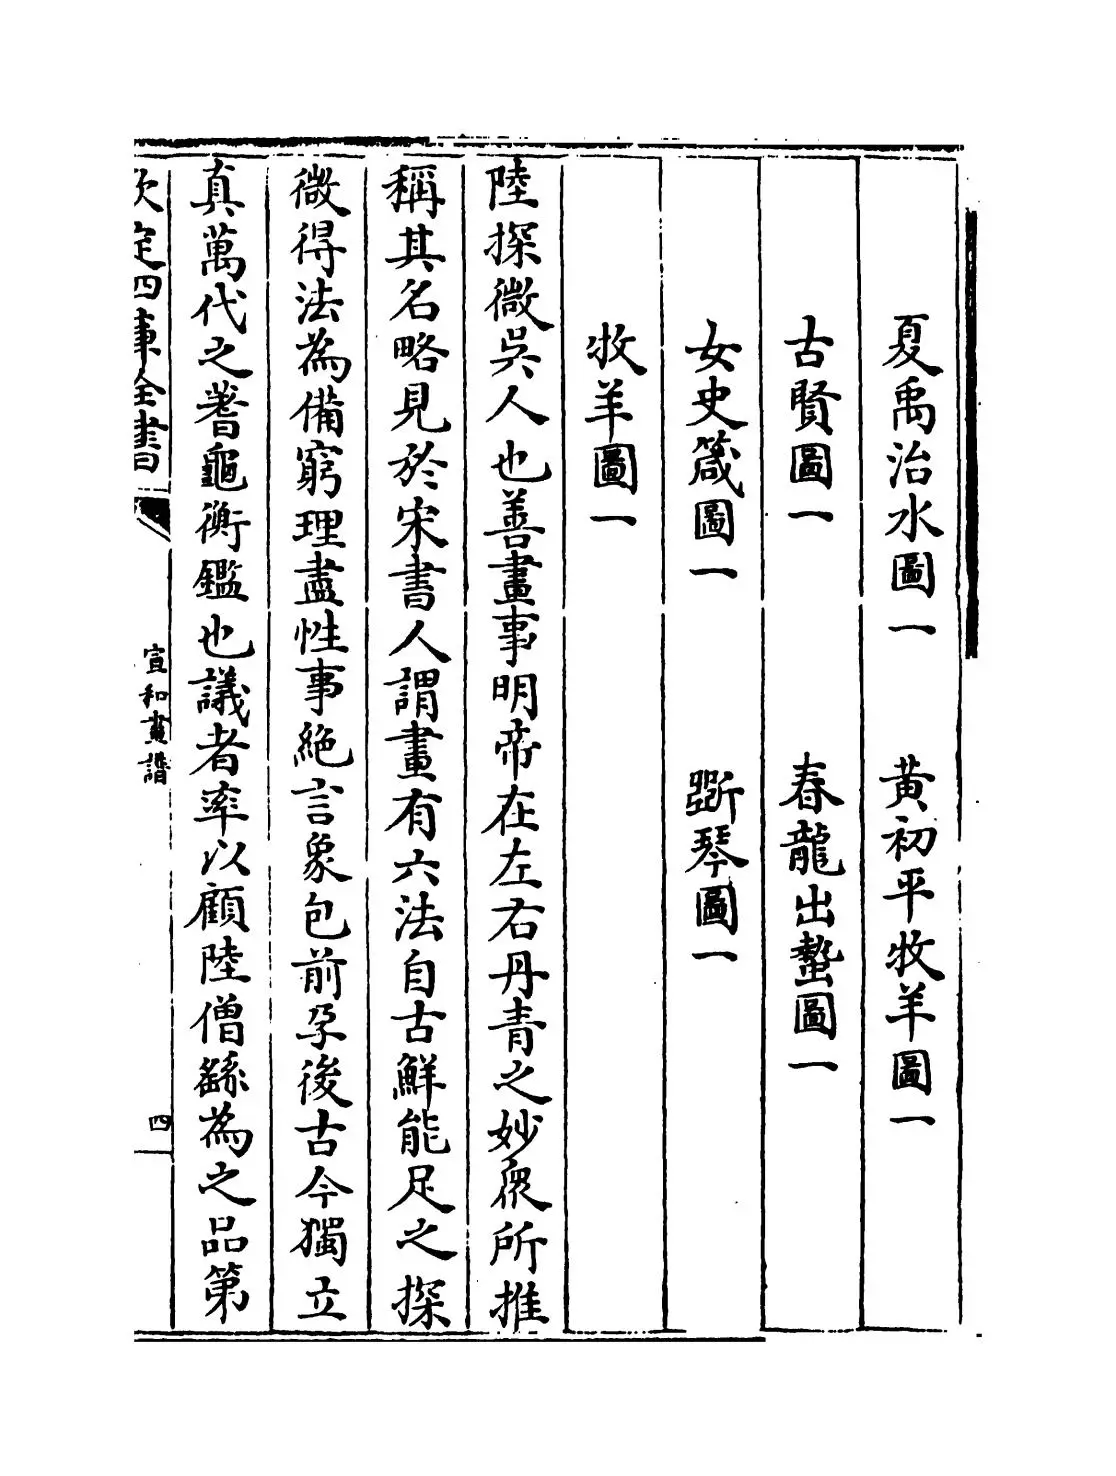 夏禹治水圖一 黄初平牧羊圖一
古賢圖一 春龍出蟄圖一
女史箴圖一 斲琴圖一
牧羊圖一
陸探微吳人也善畫事明帝在左右丹青之妙衆所推
稱其名略見於宋書人謂畫有六法自古鮮能足之探
微得法為備窮理盡性事絶言象包前孕後古今獨立
真萬代之蓍龜衡鑑也議者率以顧陸僧繇為之品第
欽定四庫全書
宣和畫譜
四